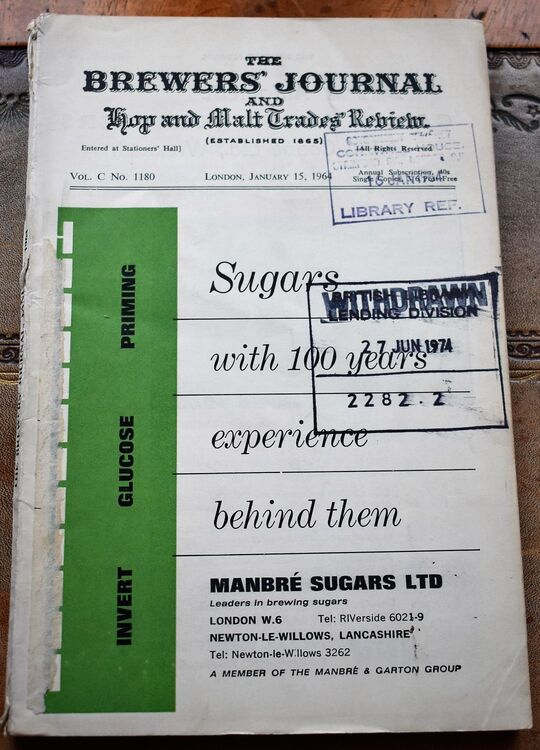 THE
BREWERS' JOURNAL
AND
Hop and Malt Trades' Review.
(ESTABLISHED 1865)
Entered at Stationers' Hall]
[All Rights Reserved
VOL. C No. 1180
LONDON, JANUARY 15, 1964
Annual Subscription, 40s
Single Copies, Post Free
LIBRARY REF.
WITHDRAWN
LENDING DIVISION
27 JUN 1974
2282.2
INVERT GLUCOSE PRIMING
Sugars
with 100 years
experience
behind them
MANBRÉ SUGARS LTD
Leaders in brewing sugars
LONDON W.6 Tel: RIVerside 6021-9
NEWTON-LE-WILLOWS, LANCASHIRE
Tel: Newton-le-Willows 3262
A MEMBER OF THE MANBRÉ & GARTON GROUP